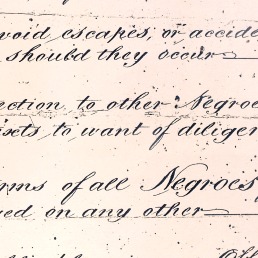 void escapes, or accide
should they occur
ection to other Negroe
sets to want of diliger
rms of all Negroes,
ed on any other